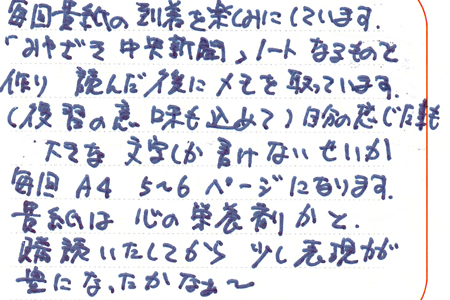 毎回貴紙の到着を楽しみにしています.
「みやざき中央新聞」ノートなるものを
作り 読んだ後にメモを取っています.
(復習の意味も込めて)自分の感じた事も
大きな文字しか書けないせいか
毎回 A4 5〜6 ページになります.
貴紙は 心の栄養剤かと.
購読いたしてから 少し表現力が
豊になったかなぁ〜